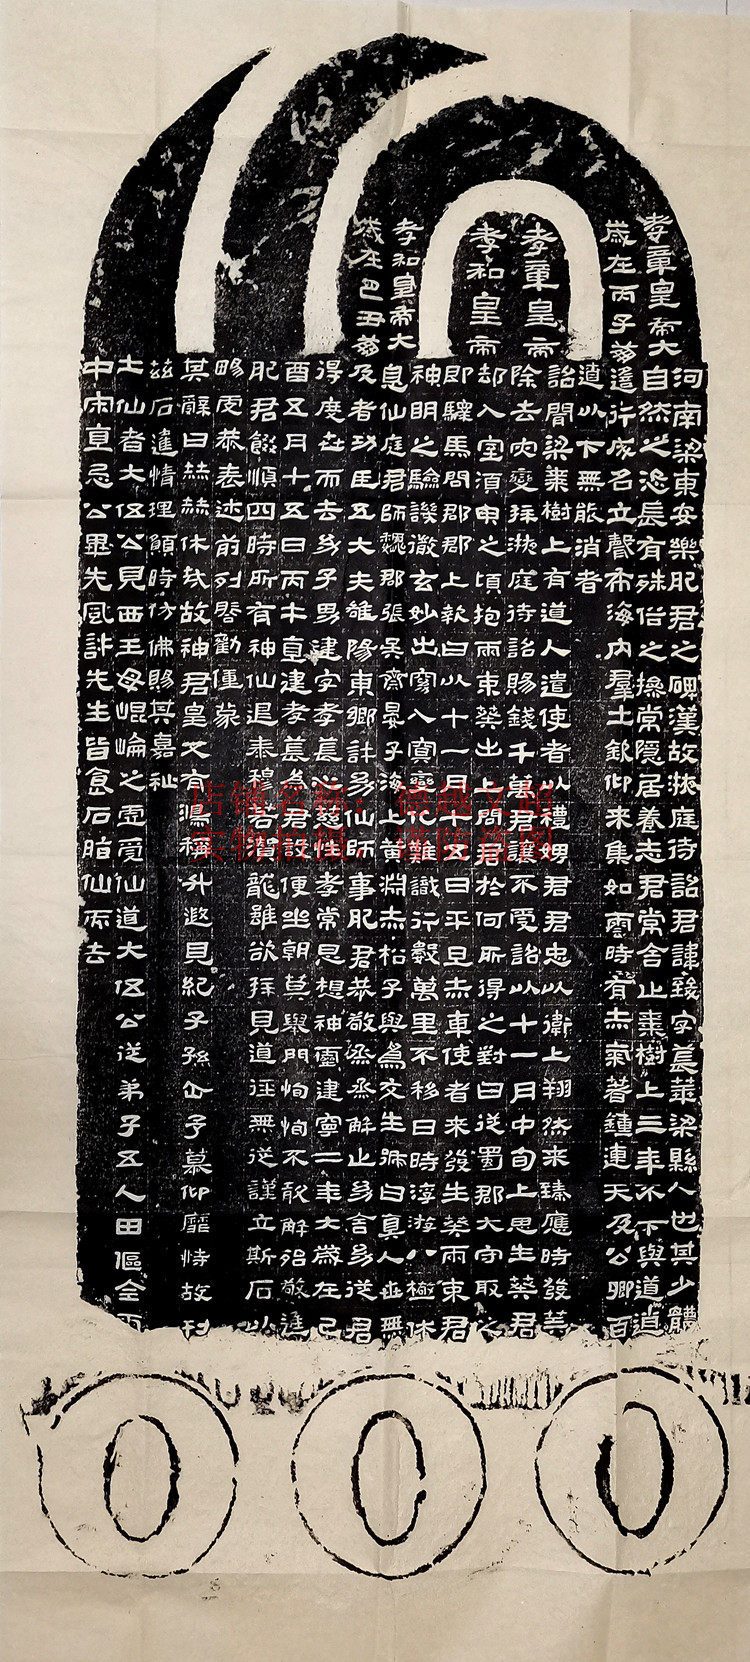 孝章皇帝大
歲在丙子崩
孝章皇帝
孝和皇帝
孝和皇帝大
歲在己丑崩
河南梁東安樂肥君之碑漢故掖庭待詔君諱致字萇華梁縣人也其少體
自然之恣長有殊俗之操常隱居養志君常舍止棗樹上三年不下與道逍
遙行成名立聲布海內羣士欽仰來集如雲時有赤氣著鍾連天及公卿百
遼以下無能消者
詔聞梁棗樹上有道人遣使者以禮娉君君忠以衛上翔然來臻應時發算
除去災變拜掖庭待詔賜錢千萬君讓不受詔以十一月中旬上思生葵君
却入室須臾之頃抱兩束葵出上問君於何所得之對曰從蜀郡大守取之
即驛馬問郡郡上報曰以十一月十五日平旦赤車使者來發生葵兩束君
神明之驗譏徹玄妙出窈入冥變化難識行數萬里不移日時浮游八極休
息仙庭君師魏郡張吳齋晏子海上黃淵赤松子與為友生號曰真人世無
及者功臣五大夫雒陽東鄉許幼仙師事肥君恭敬烝烝解止幼舍幼從君
得度世而去幼子男建字孝萇心慈性孝常思想神靈建寧二年大歲在己
酉五月十五日丙午直建孝萇為君設便坐朝莫舉門恂恂不敢解殆敬進
肥君餟順四時所有神仙退泰穆若潛龍雖欲拜見道徑無從謹立斯石以
暢虔恭表述前列啓勸僮蒙
其辭曰赫赫休哉故神君皇又有鴻稱升遐見紀子孫企予慕仰靡恃故刊
茲石達情理願時仿佛賜其嘉祉
土仙者大伍公見西王母崐崘之虛受仙道大伍公從弟子五人田傴全雨
中宋直忌公畢先風許先生皆食石脂仙而去
店铺名称：德
实物拍摄，谨防盗图